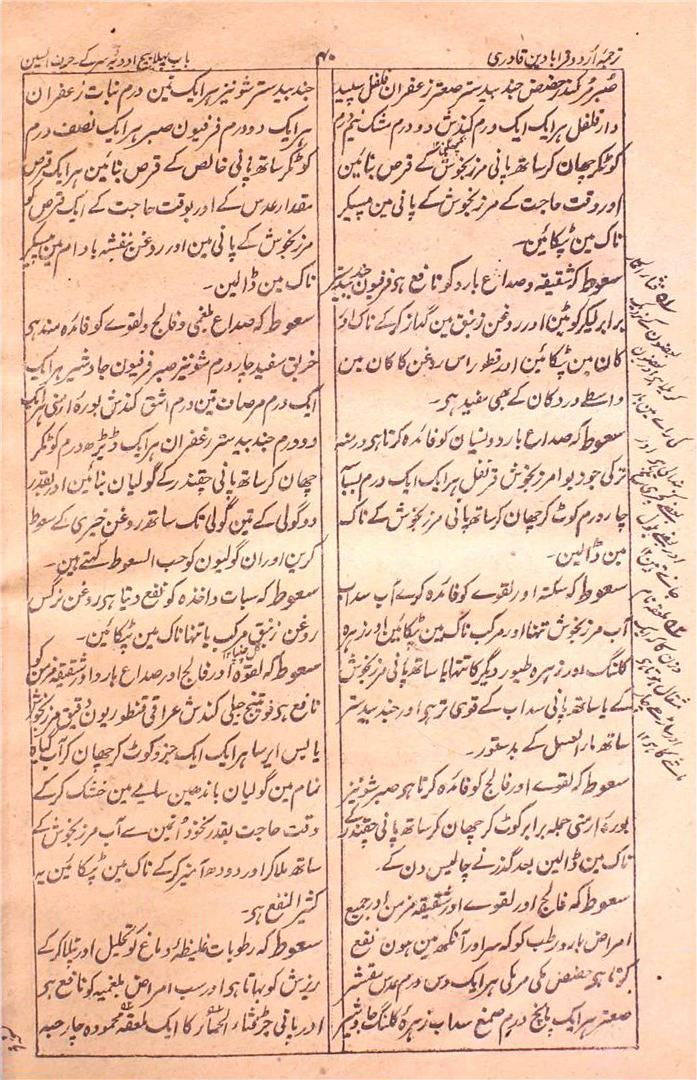 ترجمہ اردو قرابادین قادری
۴۰
باب پہلا بیچ ادویہ سر کے۔ حرف السین
صبر مر کندر حضض جندبیدستر صعتر زعفران فلفل سپید
دار فلفل ہر ایک ایک درم کندش دو درم مشک نیم درم
کوٹکر چھان کر ساتھ پانی مرزنجوش کے قرص بنائین
اور وقت حاجت کے مرزنجوش کے پانی مین پیسکر
ناک مین ٹپکائین۔
سعوط کہ شقیقہ و صداع بارد کو نافع ہو فرفیون جندبیدستر
برابر لیکر کوٹین اور روغن زنبق مین گداز کر کے ناک اور
کان مین ٹپکائین اور قطور اس روغن کا کان مین
واسطے درد کان کے بھی مفید ہو۔
سعوط کہ صداع بارد و نسیان کو فائدہ کرتا ہو درمنہ
ترکی جوز بوا مرزنجوش قرنفل ہر ایک ایک درم
چار درم کوٹ کر چھان کر ساتھ پانی مرزنجوش کے ناک
مین ڈالین۔
سعوط کہ سکتہ اور لقوے کو فائدہ کرے آب سداب
آب مرزنجوش تنہا اور مرکب ناک مین ٹپکائین اور زہرہ
کلنگ اور زہرہ طیور دیگر کا تنہا یا ساتھ پانی مرزنجوش
کے یا ساتھ پانی سداب کے قوی تر ہو اور جندبیدستر
ساتھ ماء العسل کے بدستور۔
سعوط کہ لقوے اور فالج کو فائدہ کرتا ہو صبر شونیز
بورہ ارمنی جملہ برابر کوٹ کر چھان کر ساتھ پانی چقندر کے
ناک مین ڈالین بعد گذرنے چالیس دن کے۔
سعوط کہ فالج اور لقوے اور شقیقہ مزمن اور جمیع
امراض بارد رطب کو کہ سر اور آنکھ مین ہون نفع
کرتا ہو حضض مکی مر مکی ہر ایک دس درم عدس مقشر
صعتر ہر ایک پانچ درم صمغ سداب زہرہ کلنگ جاوشیر
جندبیدستر شونیز ہر ایک تین درم نبات زعفران
ہر ایک دو درم فرفیون صبر ہر ایک نصف درم
کوٹکر ساتھ پانی خالص کے قرص بنائین ہر ایک قرص
مقدار عدس کے اور بوقت حاجت کے ایک قرص کو
مرزنجوش کے پانی مین اور روغن بنفشہ بادام مین پیسکر
ناک مین ڈالین۔
سعوط کہ صداع بلغمی و فالج و لقوے کو فائدہ مند ہو
خربق سفید چار درم شونیز صبر فرفیون جاوشیر ہر ایک
ایک درم مرصاف تین درم اشق کندش بورہ ارمنی ہر ایک
دو درم جندبیدستر زعفران ہر ایک ڈیڑھ درم کوٹکر
چھان کر ساتھ پانی چقندر کے گولیان بنائین اور بقدر
دو گولی کے تین گولی تک ساتھ روغن خیری کے سعوط
کرین اور ان گولیون کو حب السعوط کہتے ہین۔
سعوط کہ سبات و اخذہ کو نفع دیتا ہو روغن نرگس
روغن زنبق مرکب یا تنہا ناک مین ٹپکائین۔
سعوط کہ لقوہ اور فالج اور صداع بارد اور شقیقہ مزمن کو
نافع ہو فوتنج جبلی کندش عراقی قنطوریون دقیق مرزنجوش
یابس ایرسا ہر ایک ایک جزو کوٹ کر چھان کر آب
نمام مین گولیان باندھین سایے مین خشک کر کے
وقت حاجت بقدر نخود اُنمین سے آب مرزنجوش کے
ساتھ ملا کر اور دودھ آمیز کر کے ناک مین ٹپکائین یہ
کثیر النفع ہو۔
سعوط کہ رطوبات غلیظہ دماغ کو تحلیل اور پتلا کر کے
ریزش کو بہاتا ہو اور سب امراض بلغمیہ کو نافع ہو
اور پانی جڑ قثاء الحمار کا ایک ملعقہ محمودہ چار حبہ